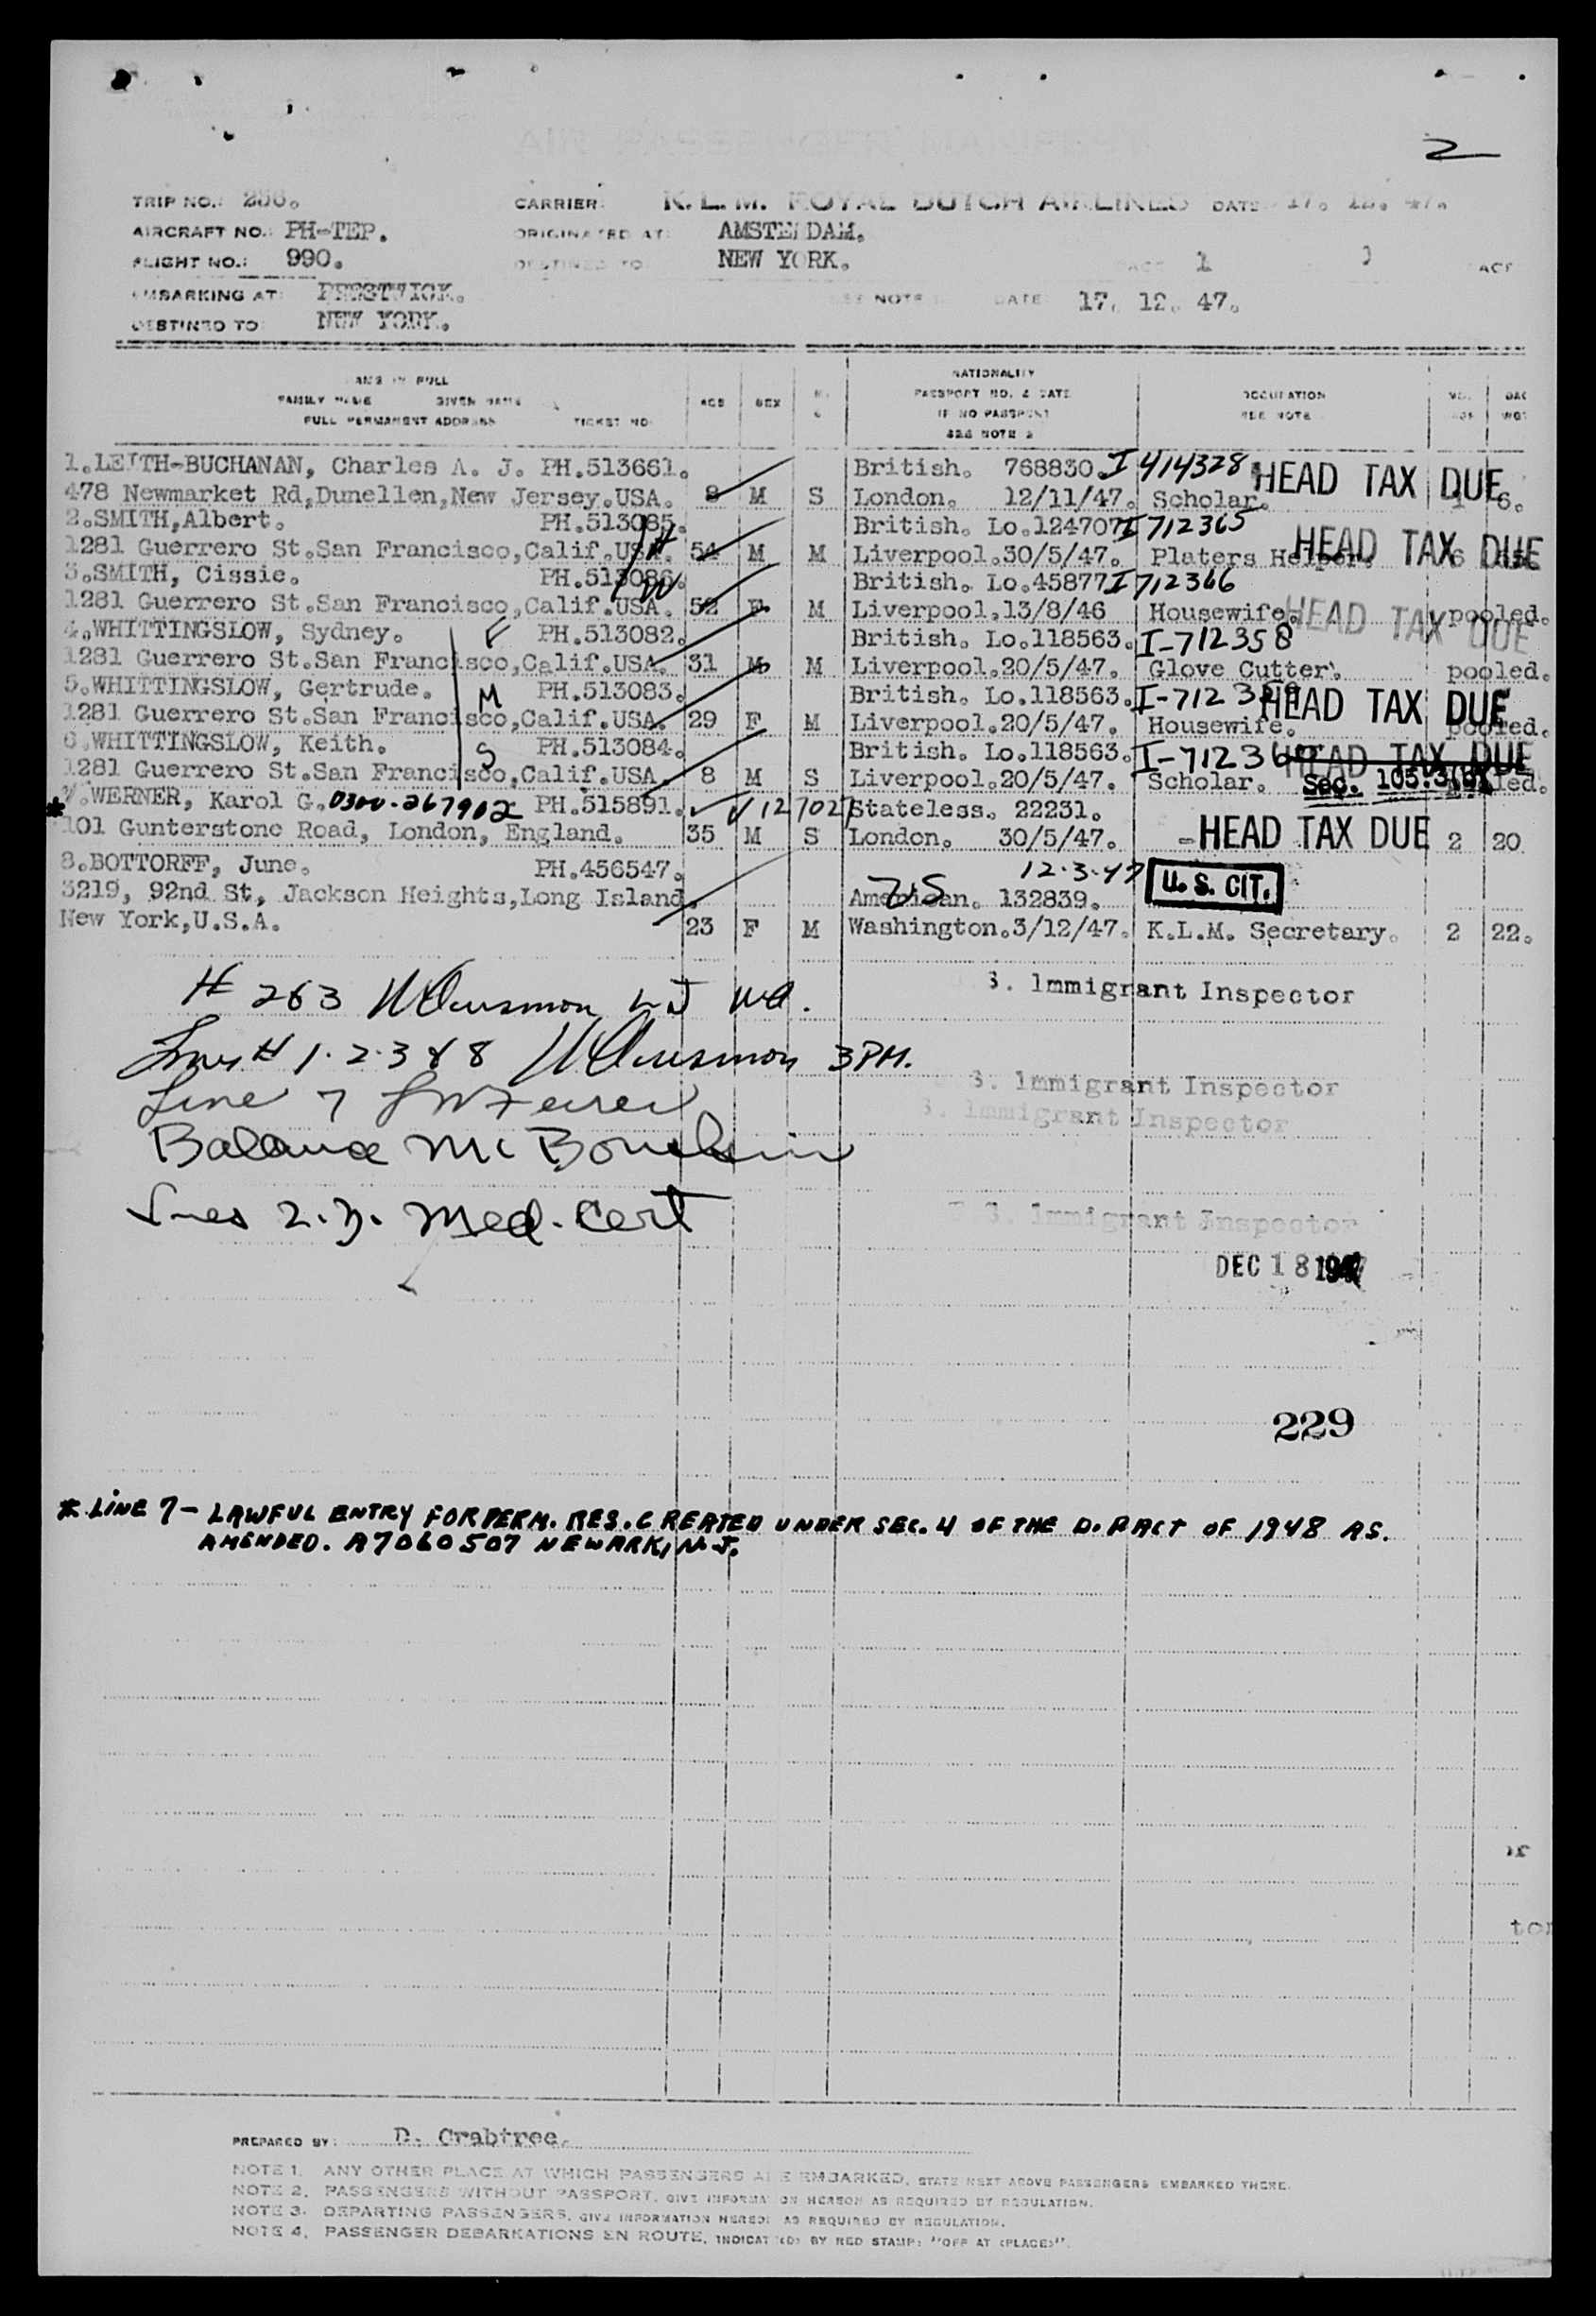 AIR PASSENGER MANIFEST
2
TRIP NO.: 256.
CARRIER: K.L.M. ROYAL DUTCH AIRLINES DATE 17. 12. 47.
AIRCRAFT NO.: PH-TEP. ORIGINATED AT: AMSTERDAM.
FLIGHT NO.: 990. DESTINED TO: NEW YORK. PAGE 1
EMBARKING AT: PRESTWICK. SEE NOTE DATE 17. 12. 47.
DESTINED TO: NEW YORK.
NAME IN FULL
FAMILY NAME GIVEN NAME
FULL PERMANENT ADDRESS TICKET NO.
AGE SEX
NATIONALITY
PASSPORT NO. & DATE
IF NO PASSPORT
SEE NOTE 2
OCCUPATION
SEE NOTE
1.LEITH-BUCHANAN, Charles A. J. PH.513661. British. 768830. I 414328 HEAD TAX DUE
478 Newmarket Rd,Dunellen,New Jersey.USA. 8 M S London. 12/11/47. Scholar. 1 6.
2.SMITH,Albert. PH.513085. H British. Lo.124707 I 712365
1281 Guerrero St.San Francisco,Calif.USA. 54 M M Liverpool.30/5/47. Platers Helper. HEAD TAX DUE 6
3.SMITH, Cissie. PH.513086. W British. Lo.45877 I 712366
1281 Guerrero St.San Francisco,Calif.USA. 52 F M Liverpool.13/8/46 Housewife. HEAD TAX DUE pooled.
4.WHITTINGSLOW, Sydney. F PH.513082. British. Lo.118563. I-712358
1281 Guerrero St.San Francisco,Calif.USA. 31 M M Liverpool.20/5/47. Glove Cutter. pooled.
5.WHITTINGSLOW, Gertrude. M PH.513083. British. Lo.118563. I-712359 HEAD TAX DUE
1281 Guerrero St.San Francisco,Calif.USA. 29 F M Liverpool.20/5/47. Housewife. pooled.
6.WHITTINGSLOW, Keith. S PH.513084. British. Lo.118563. I-712360 HEAD TAX DUE
1281 Guerrero St.San Francisco,Calif.USA. 8 M S Liverpool.20/5/47. Scholar. Sec. 105.3(b) pooled.
* 7.WERNER, Karol G. 0300-267902 PH.515891. V 127027 Stateless. 22231.
101 Gunterstone Road, London, England. 35 M S London. 30/5/47. - HEAD TAX DUE 2 20
8.BOTTORFF, June. PH.456547. 12.3.47 U.S. CIT.
3219, 92nd St, Jackson Heights,Long Island. US American. 132839.
New York,U.S.A. 23 F M Washington.3/12/47. K.L.M. Secretary. 2 22.
# 263
S. Immigrant Inspector
Lines # 1.2.3 & 8 3 PM.
S. Immigrant Inspector
Line 7
S. Immigrant Inspector
Balance
Lines 2.3. Med. Cert
S. Immigrant Inspector
DEC 18 1947
229
* LINE 7 - LAWFUL ENTRY FOR PERM. RES. CREATED UNDER SEC. 4 OF THE D.P ACT OF 1948 AS.
AMENDED. A7060507 NEWARK, N.J.
tor
PREPARED BY: D. Crabtree.
NOTE 1. ANY OTHER PLACE AT WHICH PASSENGERS ARE EMBARKED, STATE NEXT ABOVE PASSENGERS EMBARKED THERE.
NOTE 2. PASSENGERS WITHOUT PASSPORT, GIVE INFORMATION HEREON AS REQUIRED BY REGULATION.
NOTE 3. DEPARTING PASSENGERS, GIVE INFORMATION HEREON AS REQUIRED BY REGULATION.
NOTE 4. PASSENGER DEBARKATIONS EN ROUTE, INDICATE(D) BY RED STAMP: "OFF AT (PLACE)".